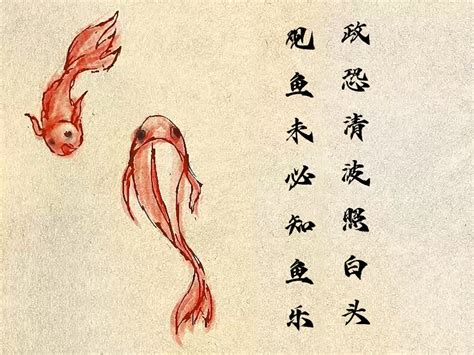 政恐清波照白头
观鱼未必知鱼乐